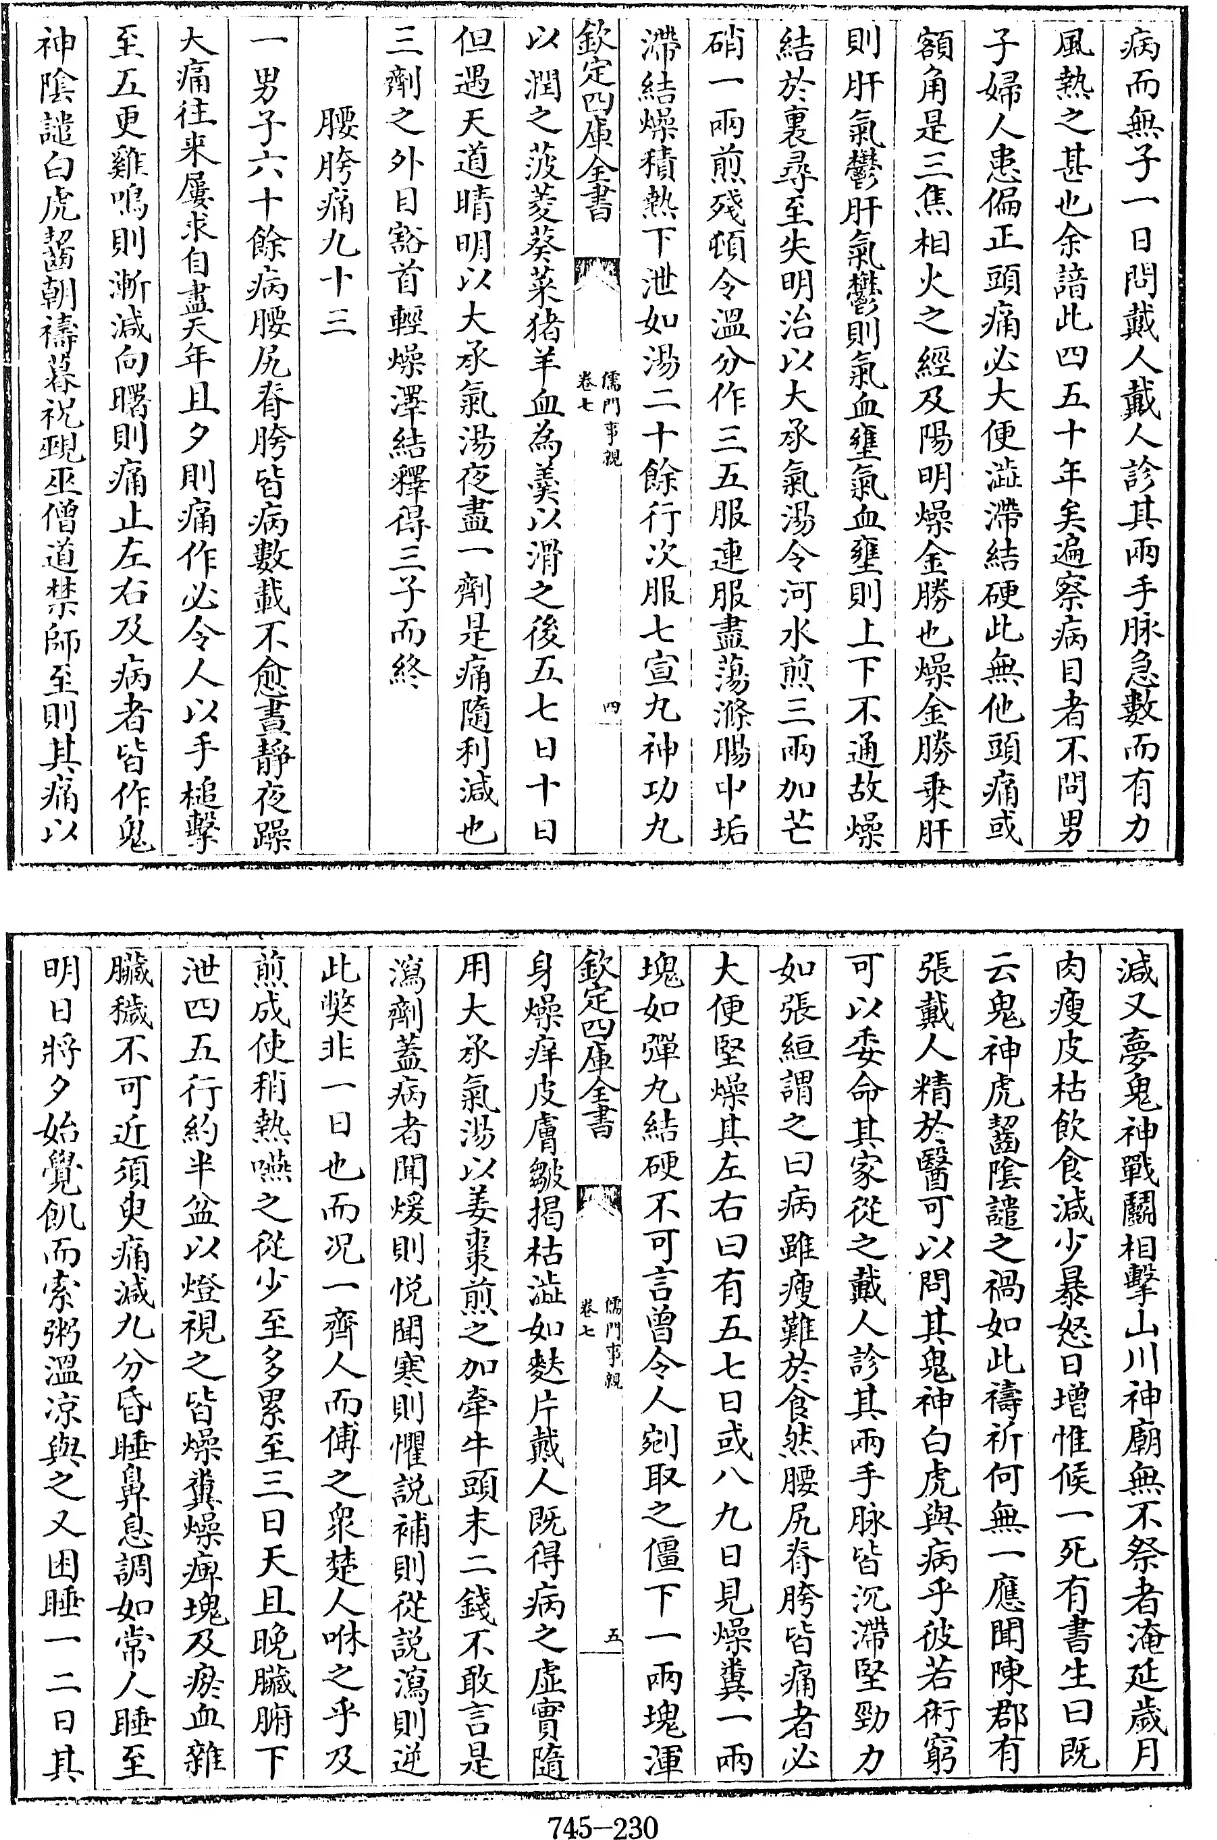 病而無子一日問戴人戴人診其兩手脉急數而有力
風熱之甚也余諳此四五十年矣遍察病目者不問男
子婦人患偏正頭痛必大便澁滯結硬此無他頭痛或
額角是三焦相火之經及陽明燥金勝也燥金勝乗肝
則肝氣鬱肝氣鬱則氣血壅氣血壅則上下不通故燥
結於裏尋至失明治以大承氣湯令河水煎三兩加芒
硝一兩煎殘頓令温分作三五服連服盡蕩滌腸中垢
滯結燥積熱下泄如湯二十餘行次服七宣丸神功丸
欽定四庫全書
儒門事親
卷七
四
以潤之菠菱葵菜猪羊血為羮以滑之後五七日十日
但遇天道晴明以大承氣湯夜盡一劑是痛隨利減也
三劑之外目豁首輕燥澤結釋得三子而終
腰胯痛九十三
一男子六十餘病腰尻脊胯皆病數載不愈晝靜夜躁
大痛往来屢求自盡天年且夕則痛作必令人以手槌擊
至五更雞鳴則漸減向曙則痛止左右及病者皆作鬼
神陰譴白虎齧朝禱暮祝覡巫僧道禁師至則其痛以
減又夢鬼神戰鬬相擊山川神廟無不祭者淹延歲月
肉瘦皮枯飲食減少暴怒日增惟候一死有書生曰既
云鬼神虎齧陰譴之禍如此禱祈何無一應聞陳郡有
張戴人精於醫可以問其鬼神白虎與病乎彼若術窮
可以委命其家從之戴人診其兩手脉皆沉滯堅勁力
如張絙謂之曰病雖瘦難於食然腰尻脊胯皆痛者必
大便堅燥其左右曰有五七日或八九日見燥糞一兩
塊如彈丸結硬不可言曽令人剜取之僵下一兩塊渾
欽定四庫全書
儒門事親
卷七
五
身燥痒皮膚皺揭枯澁如麩片戴人既得病之虛實隨
用大承氣湯以姜棗煎之加牽牛頭末二錢不敢言是
瀉劑蓋病者聞煖則悦聞寒則懼説補則從説瀉則逆
此獘非一日也而况一齊人而傅之衆楚人咻之乎及
煎成使稍熱嚥之從少至多累至三日天且晚臟腑下
泄四五行約半盆以燈視之皆燥糞燥痺塊及瘀血雜
臟穢不可近須臾痛減九分昏睡鼻息調如常人睡至
明日將夕始覺飢而索粥温凉與之又困睡一二日其
745-230